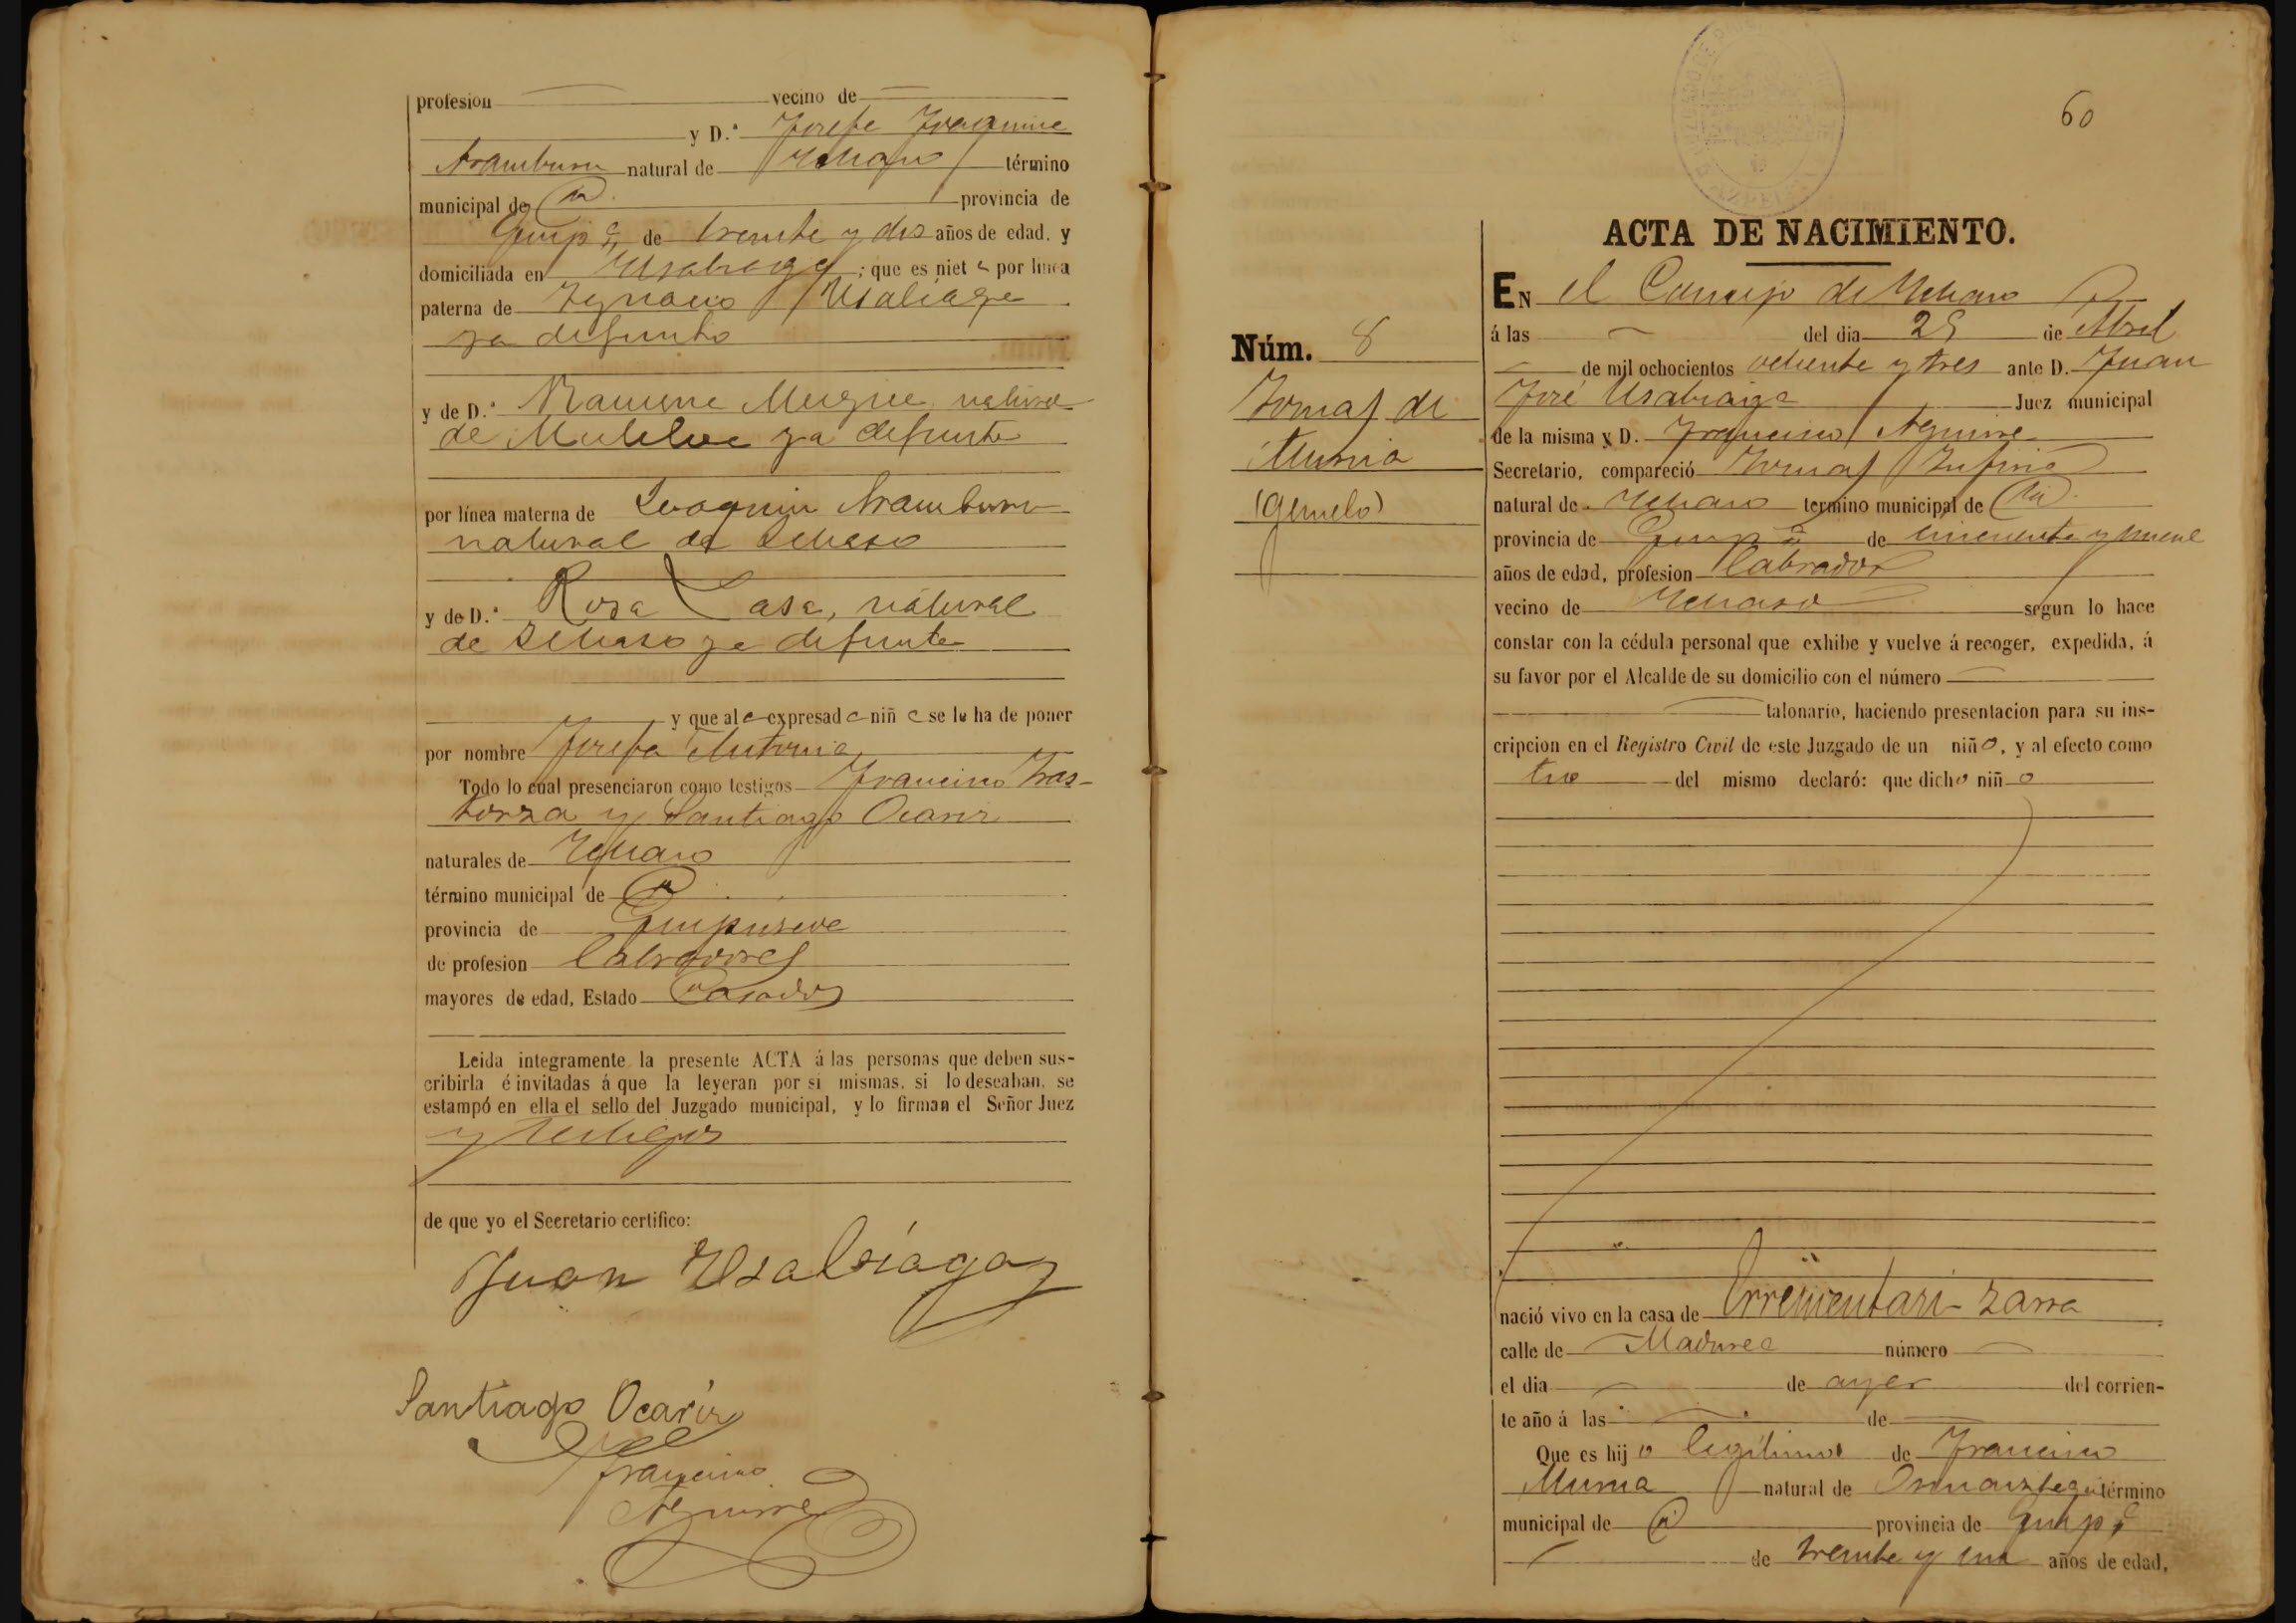 profesion vecino de
y D.ª Josefa Joaquina
Aramburu natural de Ichaso término
municipal de id. provincia de
Guip.ª de treinta y dos años de edad, y
domiciliada en Usabiaga; que es niet a por línea
paterna de Ignacio Usabiaga
ya difunto
y de D.ª Ramona natural
de Mutiloa ya difunta
por línea materna de Joaquin Aramburu
natural de Ichaso
y de D.ª Rosa Lasa, natural
de Ichaso ya difunta
y que al a expresad a niñ a se le ha de poner
por nombre Josefa Antonia
Todo lo cual presenciaron como testigos Francisco Iras-
torza y Santiago Ocariz
naturales de Ichaso
término municipal de id.
provincia de Guipuzcoa
de profesion labradores
mayores de edad, Estado Casados
Leida integramente la presente ACTA á las personas que deben sus-
cribirla é invitadas á que la leyeran por sí mismas, si lo deseaban, se
estampó en ella el sello del Juzgado municipal, y lo firman el Señor Juez
y testigos
de que yo el Secretario certifico:
Juan Usabiaga
Santiago Ocariz
Francisco
Aguirre
60
ACTA DE NACIMIENTO.
EN el Concejo de Ichaso
á las del dia 25 de Abril
de mil ochocientos ochenta y tres ante D. Juan
José Usabiaga Juez municipal
de la misma y D. Francisco Aguirre
Secretario, compareció Tomas
natural de Ichaso termino municipal de id.
provincia de Guip.ª de cincuenta y nueve
años de edad, profesion labrador
vecino de Ichaso segun lo hace
constar con la cédula personal que exhibe y vuelve á recoger, expedida, á
su favor por el Alcalde de su domicilio con el número
talonario, haciendo presentacion para su ins-
cripcion en el Registro Civil de este Juzgado de un niño, y al efecto como
tio del mismo declaró: que dicho niñ o
Núm. 8
Tomas de
Munia
(gemelo)
nació vivo en la casa de Errementari-zarra
calle de número
el dia de ayer del corrien-
te año á las de
Que es hij o legítimo de Francisco
Munia natural de Ormaiztegui término
municipal de id. provincia de Guip.ª
de treinta y un años de edad,